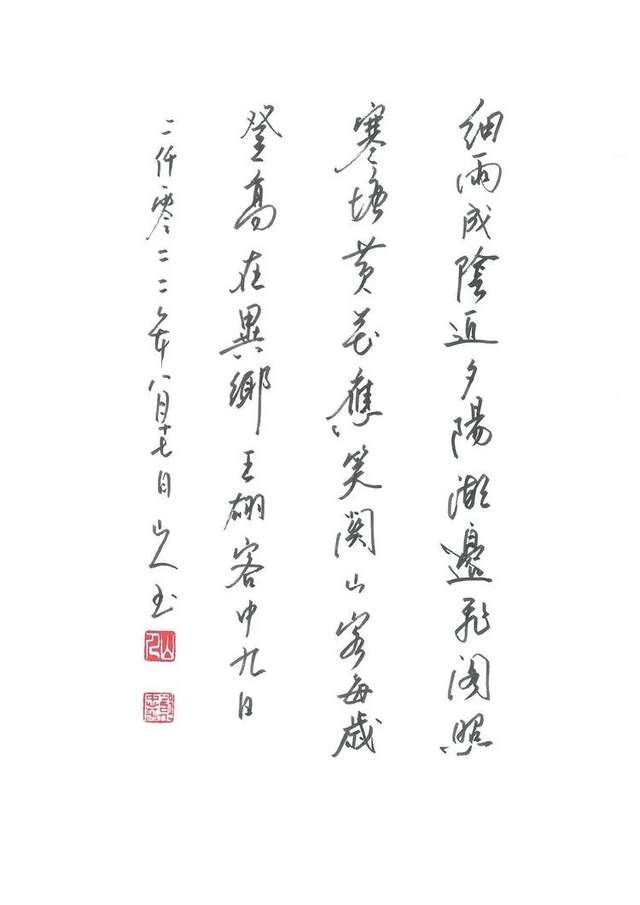 細雨成陰近夕陽湖邊飛閣照
寒塘黄花應笑關山客每歲
登高在異鄉王硼客中九日
二仟零二二年八月十七日山人书
山人